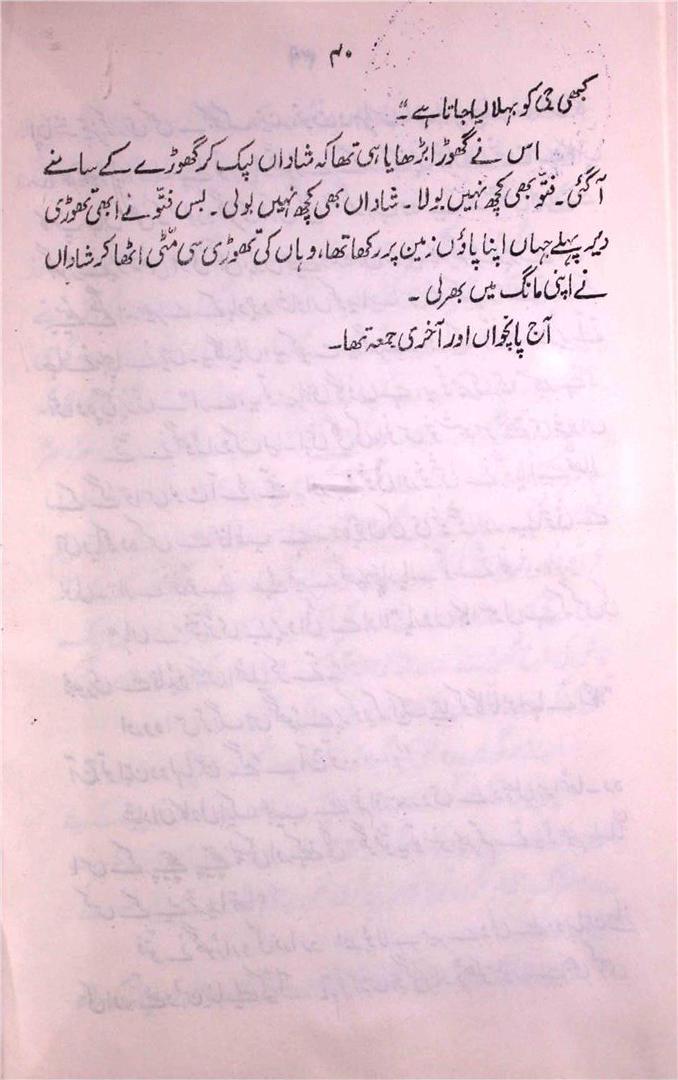 ۴۰
کبھی جی کو بہلا لیا جاتا ہے۔"
اس نے گھوڑا بڑھایا ہی تھا کہ شاداں لپک کر گھوڑے کے سامنے
آ گئی۔ فتّو بھی کچھ نہیں بولا۔ شاداں بھی کچھ نہیں بولی۔ بس فتّو نے ابھی تھوڑی
دیر پہلے جہاں اپنا پاؤں زمین پر رکھا تھا، وہاں کی تھوڑی سی مٹّی اٹھا کر شاداں
نے اپنی مانگ میں بھر لی۔
آج پانچواں اور آخری جمعہ تھا۔